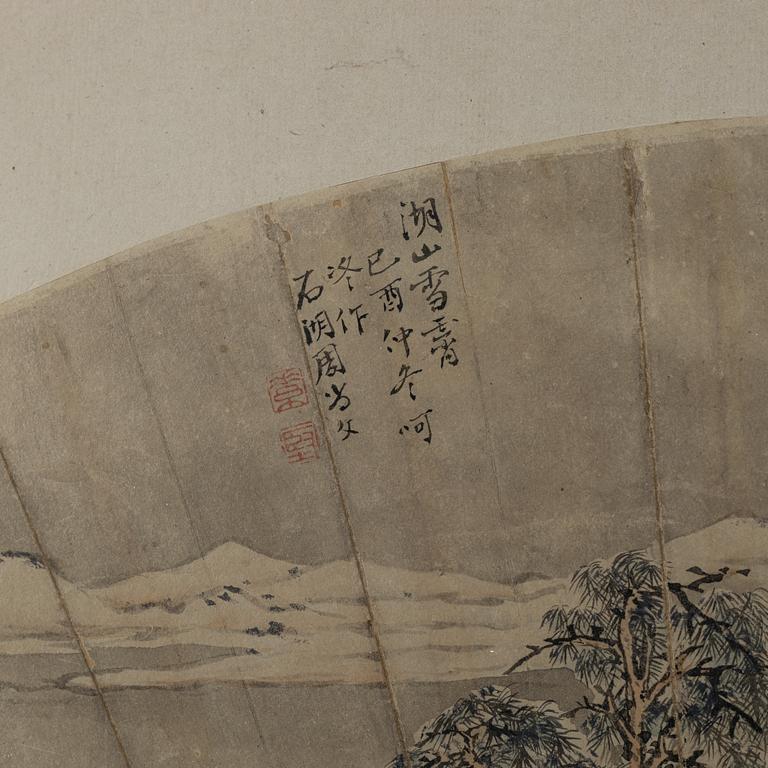 湖山雪霽
己酉仲冬呵
冻作
石湖周尚文